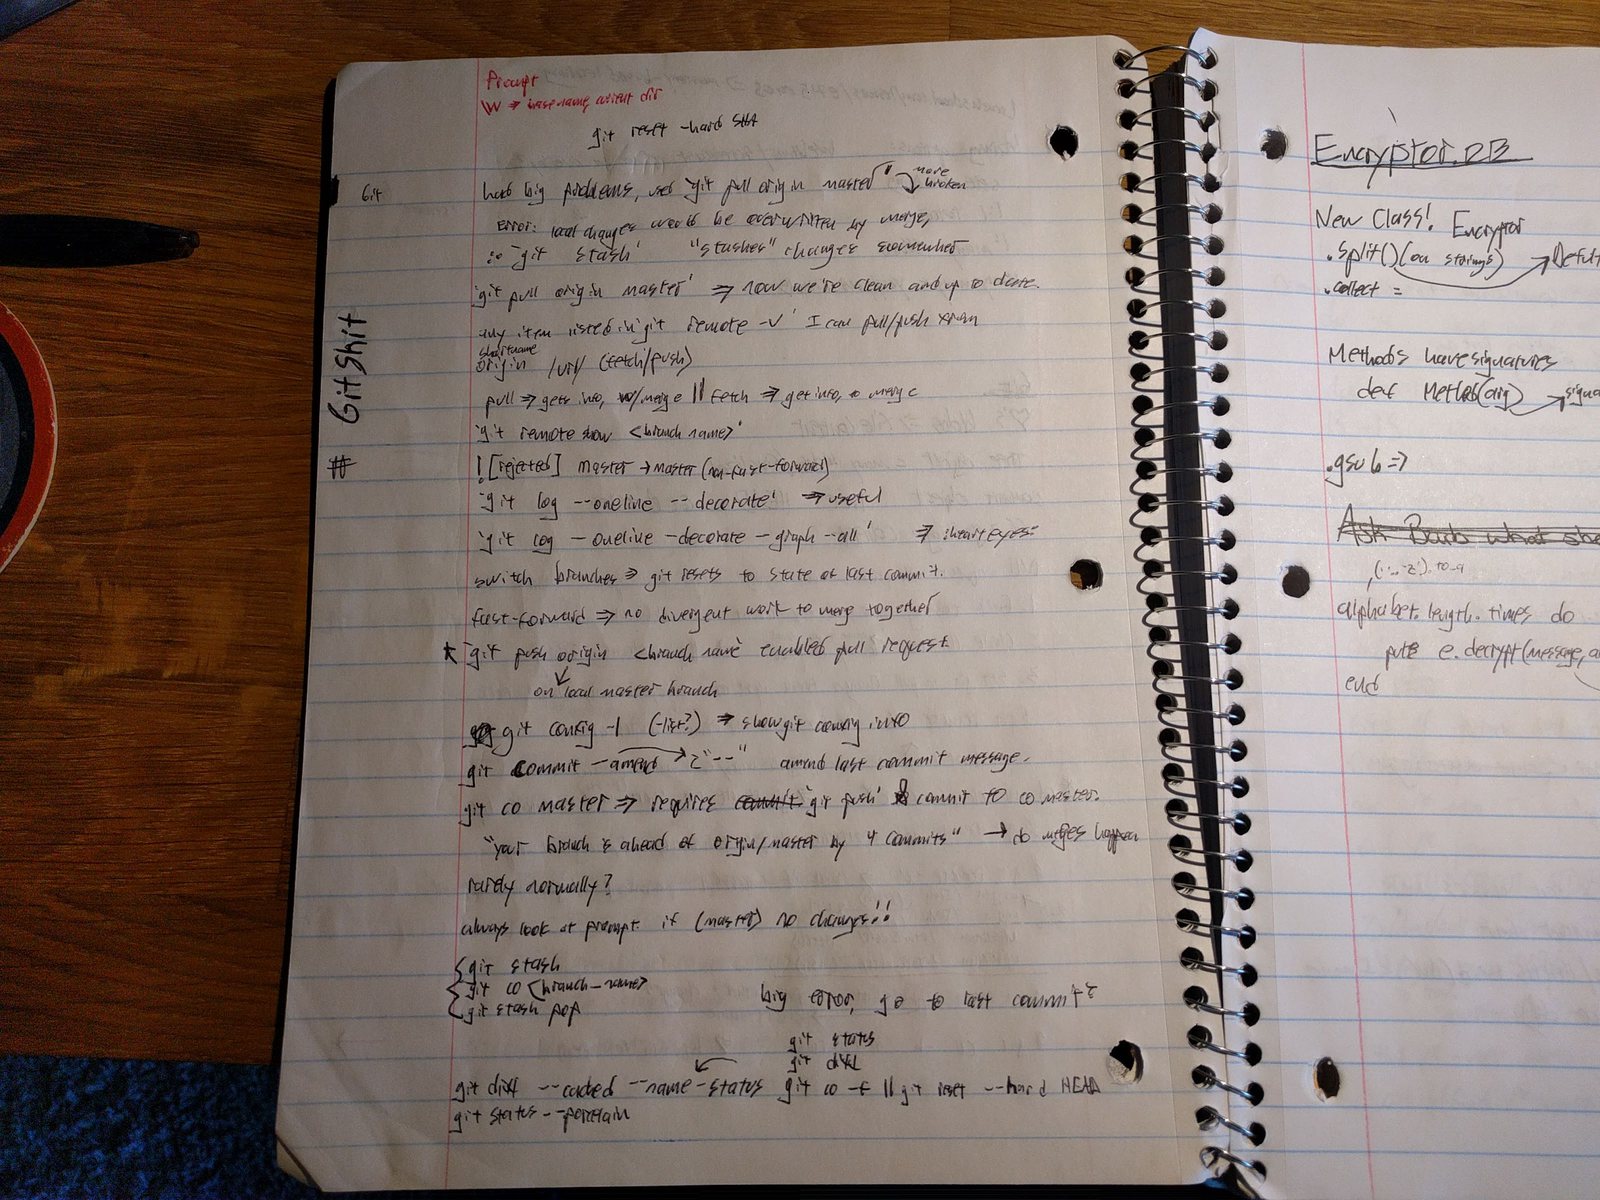 Prompt
\W → basename current dir
git reset -hard SHA
Git
had big problems, used 'git pull origin master" → more broken
error: local changes would be overwritten by merge,
'git stash' "stashes" changes somewhere
'git pull origin master' ⇒ now we're clean and up to date.
any item listed in 'git remote -v' I can pull/push from
shortname
origin /url/ (fetch/push)
pull ⇒ gets info, w/merge || fetch ⇒ get info, no merge
'git remote show <branch name>'
Git Shit
#
! [rejected] master → master (non-fast-forward)
'git log --oneline --decorate' ⇒ useful
'git log -oneline -decorate -graph --all' ⇒ :hearteyes:
switch branches ⇒ git resets to state of last commit.
fast-forward ⇒ no divergent work to merge together
* 'git push origin <branch name' enabled pull request.
on local master branch
git config -l (-list?) ⇒ show git config info
git commit -amend → "--" amend last commit message.
git co master ⇒ requires commit 'git push' commit to co master.
"your branch is ahead of origin/master by 4 commits" → do merges happen
rarely normally?
always look at prompt. if (master) no changes!!
git stash
git co <branch_name>
git stash pop
big error, go to last commit?
git status
git diff
git diff --cached --name-status git co -f || git reset --hard HEAD
git status --porcelain
Encryptor.DB
New Class! Encryptor
.split() (on strings) →
.collect =
Methods have signatures
def Method(arg) →
.gsub =>
Ask Barb what she
alphabet.length.times do
puts e.decrypt(message,
end